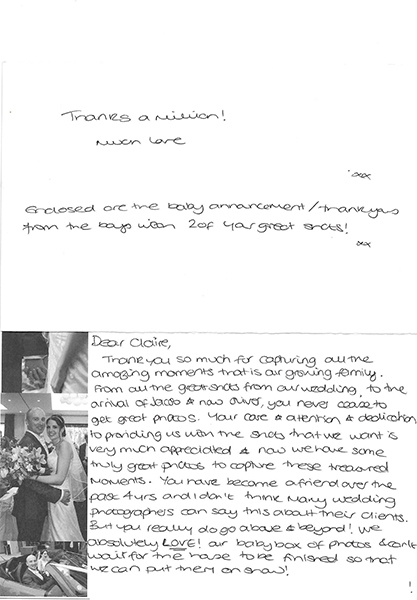 Thanks a million!
Much love
xx
Enclosed are the baby announcement/thankyous
from the boys with 2 of your great shots!
xx
Dear Claire,
Thankyou so much for capturing all the
amazing moments that is our growing family.
From all the great shots from our wedding, to the
arrival of Jacob & now Oliver, you never cease to
get great photos. Your care & attention & dedication
to providing us with the shots that we want is
very much appreciated & now we have some
truly great photos to capture these treasured
moments. You have become a friend over the
past 4yrs and I don't think many wedding
photographers can say this about their clients.
But you really do go above & beyond! We
absolutely LOVE! our baby box of photos & can't
wait for the house to be finished so that
we can put them on show!